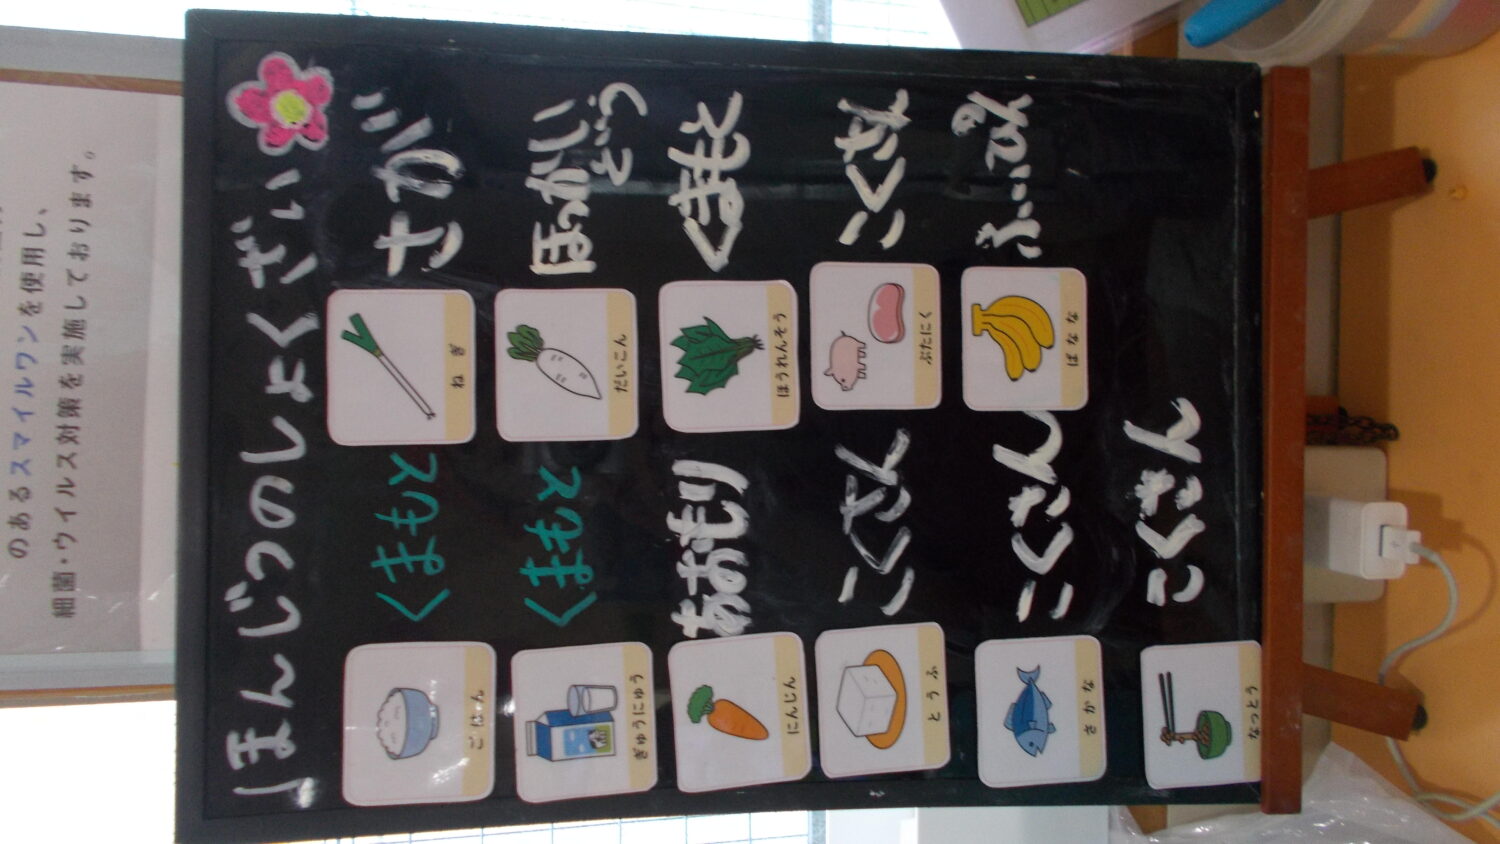 ほんじつのしょくざい
ごはん
くまもと
ねぎ
さが
ぎゅうにゅう
くまもと
だいこん
ほっかいどう
にんじん
あおもり
ほうれんそう
くまもと
とうふ
こくさん
ぶたにく
こくさん
さかな
こくさん
ばなな
ふぃりぴん
なっとう
こくさん
のあるスマイルワンを使用し、
細菌・ウイルス対策を実施しております。